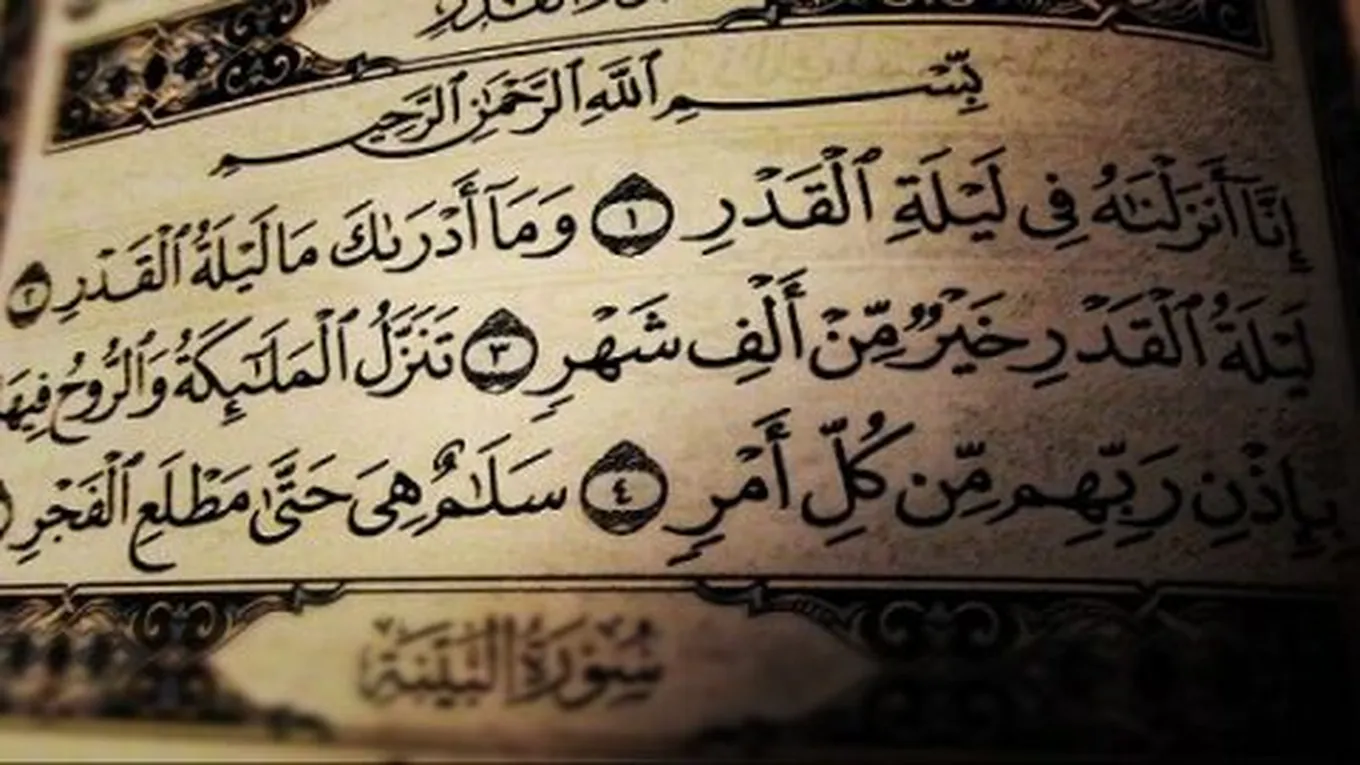 القدر
بِّسْمِ ٱللَّهِ ٱلرَّحْمَٰنِ ٱلرَّحِيمِ
إِنَّآ أَنزَلْنَٰهُ فِى لَيْلَةِ ٱلْقَدْرِ ١ وَمَآ أَدْرَىٰكَ مَا لَيْلَةُ ٱلْقَدْرِ ٢
لَيْلَةُ ٱلْقَدْرِ خَيْرٌ مِّنْ أَلْفِ شَهْرٍ ٣ تَنَزَّلُ ٱلْمَلَٰٓئِكَةُ وَٱلرُّوحُ فِيهَا
بِإِذْنِ رَبِّهِم مِّن كُلِّ أَمْرٍ ٤ سَلَٰمٌ هِىَ حَتَّىٰ مَطْلَعِ ٱلْفَجْرِ
سُورَةُ البَيِّنَة